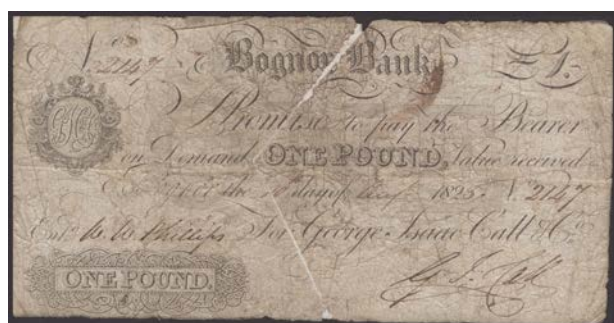 No. 2147 Bognor Bank £1.
I Promise to pay the Bearer
on Demand ONE POUND, Value received
the day of 1825. No. 2147
Entd. Phillips For George Isaac Call & Co.
ONE POUND. G. I. Call